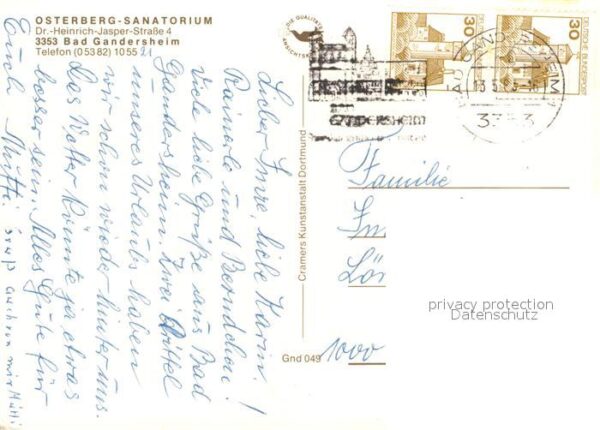 OSTERBERG-SANATORIUM
Dr.-Heinrich-Jasper-Straße 4
3353 Bad Gandersheim
Telefon (05382) 1055 21
Lieber Imre, liebe Karin!
Rainerle und Berndchen!
Viele liebe Grüße aus Bad
Gandersheim. Zwei Drittel
unseres Urlaubs haben
wir schon wieder hinter uns.
Das Wetter könnte ja etwas
besser sein. Alles Gute für
Euch Mutti
Cramers Kunstanstalt Dortmund
Gnd 049
DIE QUALITÄTS
ANSICHTSK
30
DEUTSCHE BUNDESPOST
30
DEUTSCHE BUNDESPOST
BAD GANDERSHEIM
3353
GANDERSHEIM
Familie
Im
Lör
1000
privacy protection
Datenschutz